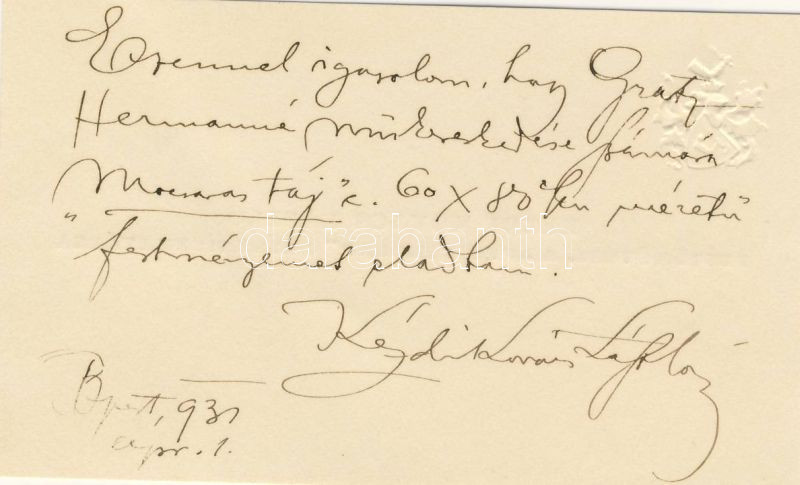 Ezennel igazolom, hogy Gratz
Hermanné műkereskedése számára
„Mocsaras táj" c. 60 X 80 cm méretű
festményemet eladtam.
Kézdi Kovács László
Bpest, 931
apr. 1.
darabanth